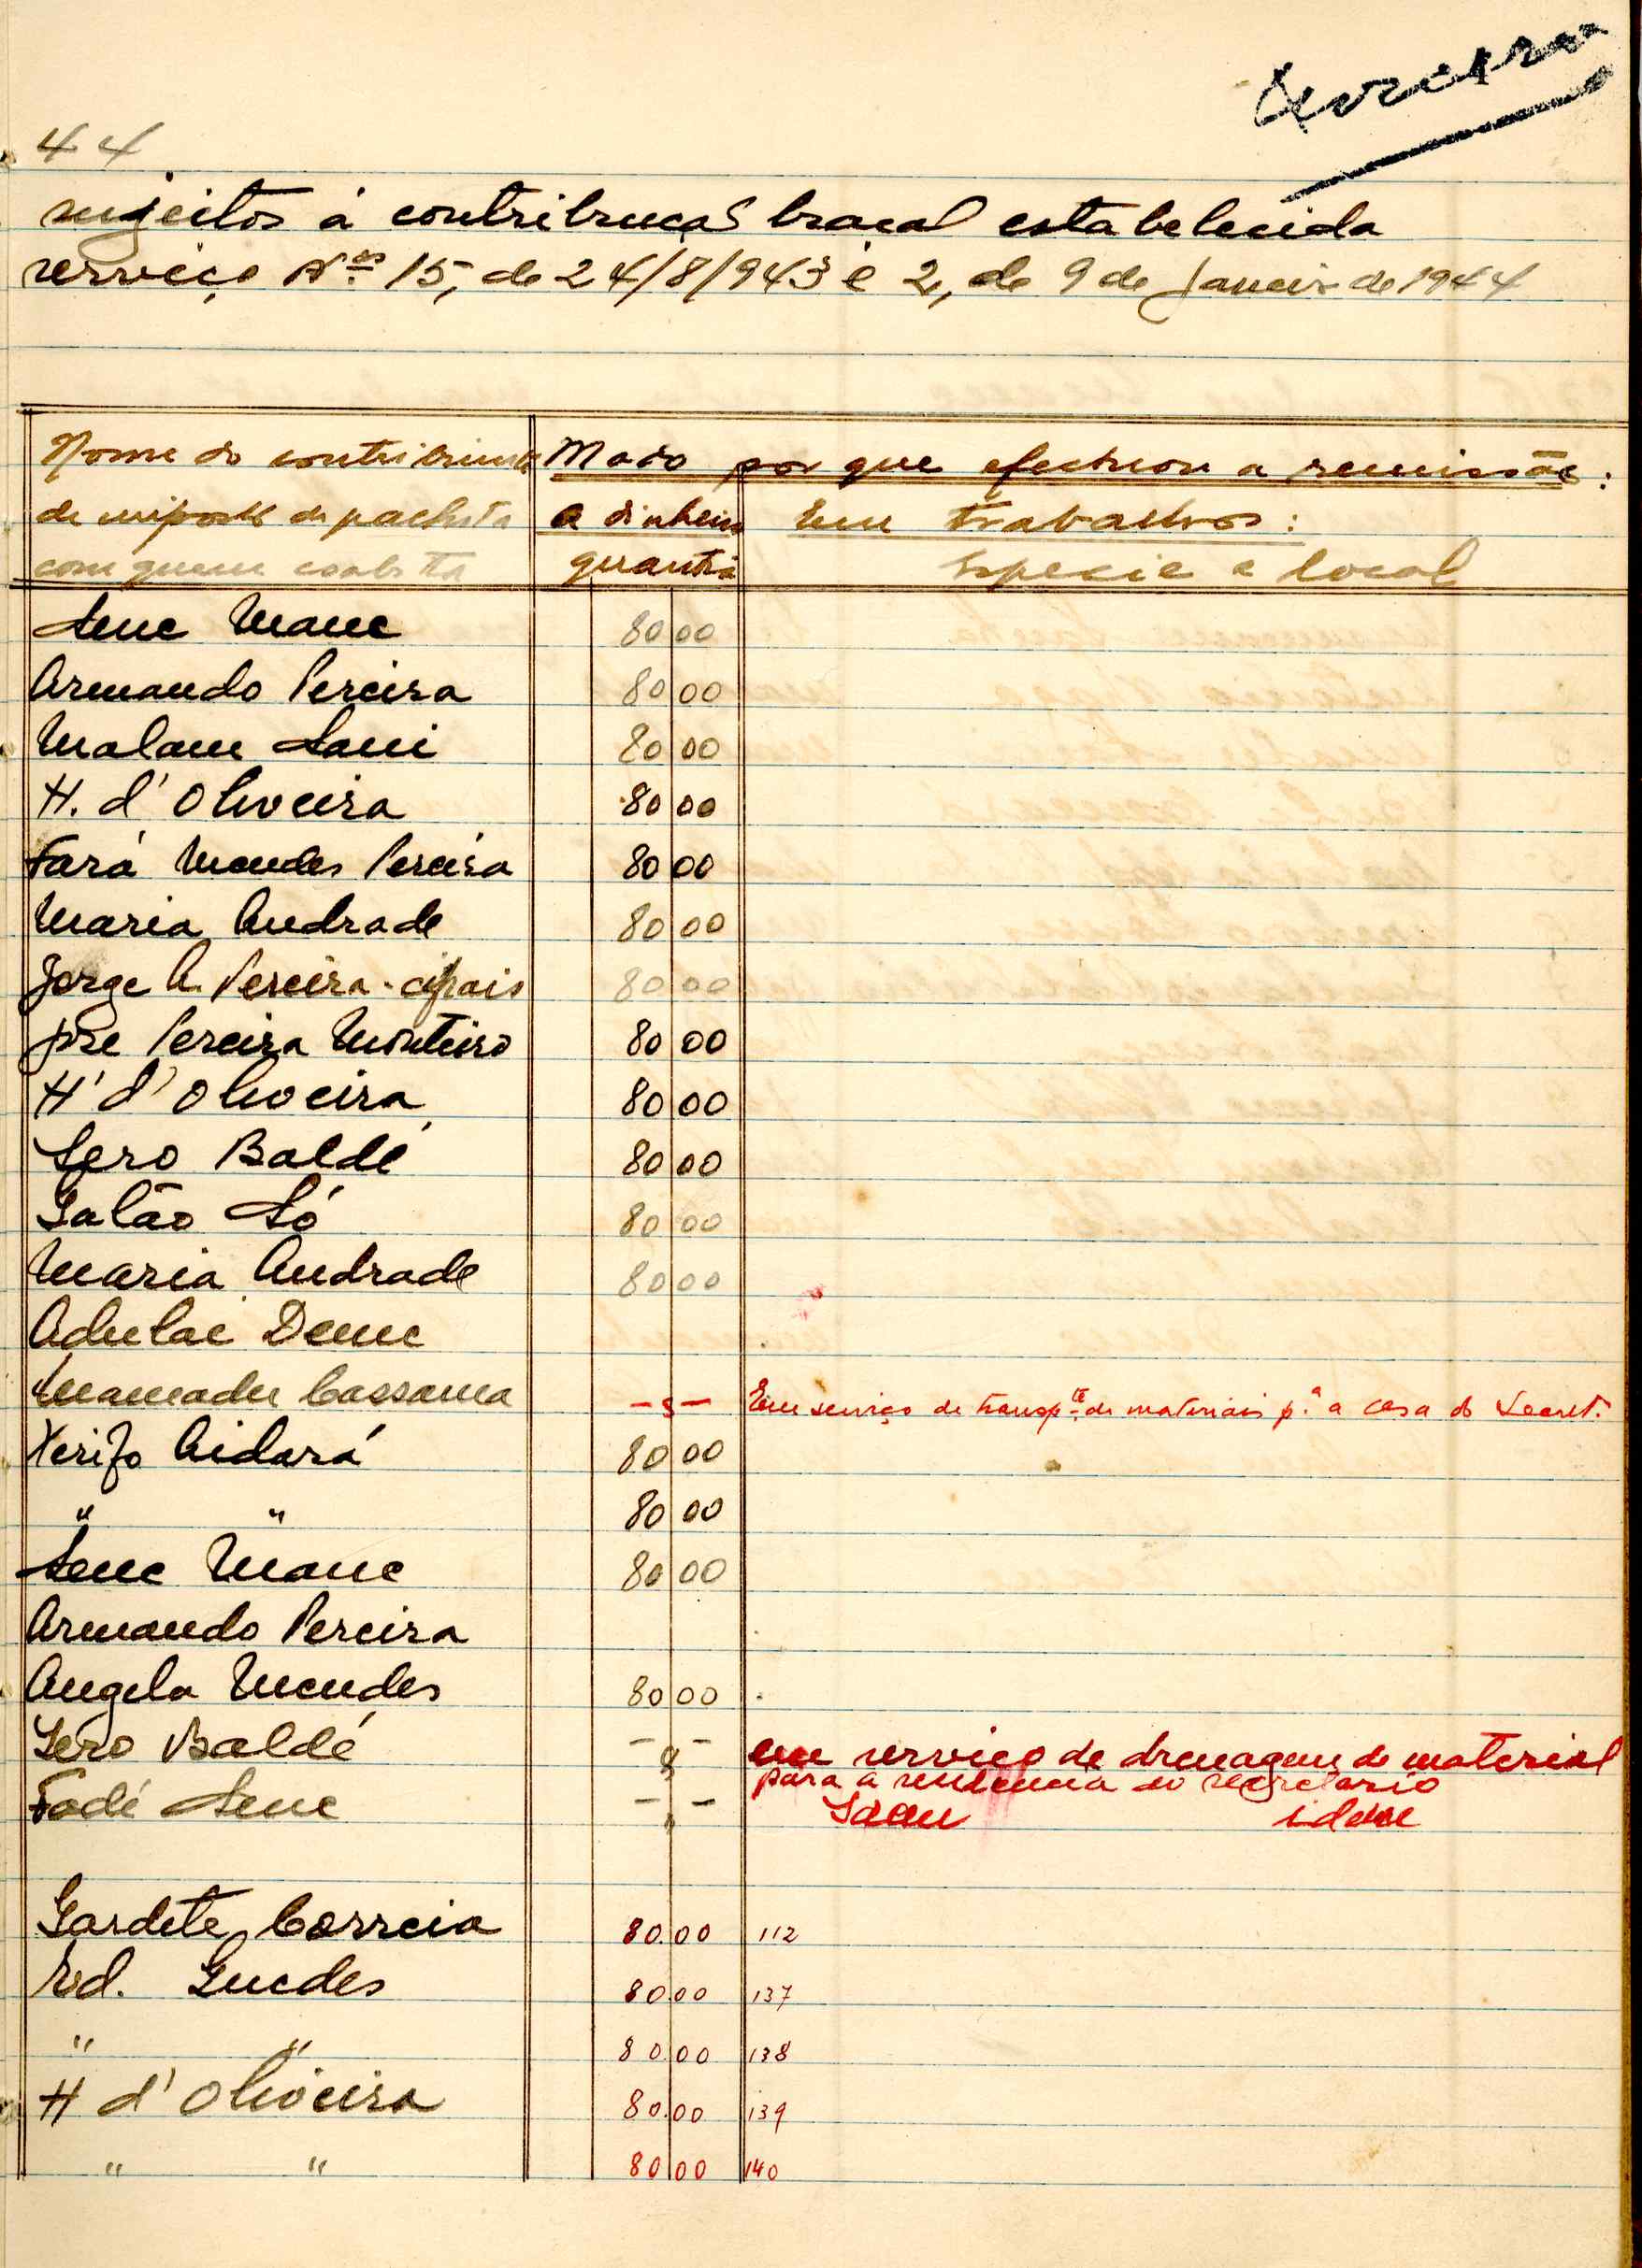 44
sujeitos á contribuçaõ braçal estabelecida
serviço Nos 15, de 24/8/943 e 2, de 9 de Janeiro de 1944
Nome do contribuinte Modo por que efectuou a remissão:
de imposto de palhota a dinheiro Em trabalhos:
com quem coabita quantia Especie e local
Sene Mane 80 00
Armando Pereira 80 00
Malam Sani 80 00
H. d'Oliveira 80 00
Fará Mendes Pereira 80 00
Maria Andrade 80 00
Jorge A. Pereira - cipais 80 00
José Pereira Monteiro 80 00
H' d'Oliveira 80 00
Sero Baldé 80 00
Galão Só 80 00
Maria Andrade 80 00
Adulai Deme
Mamadu Cassama -s- Em serviço de transpte de materiais p.a a casa do Secret.
Xerifo Aidará 80 00
" " 80 00
Sene Mane 80 00
Armando Pereira
Angela Mendes 80 00
Sero Baldé - s - em serviço de drenagem de material
para a residencia do secretario
Fodé Sene - - Idem idem
Gardete Correia 80.00 112
Ed. Guedes 80.00 137
" " 80.00 138
H d'Oliveira 80.00 139
" " 80 00 140